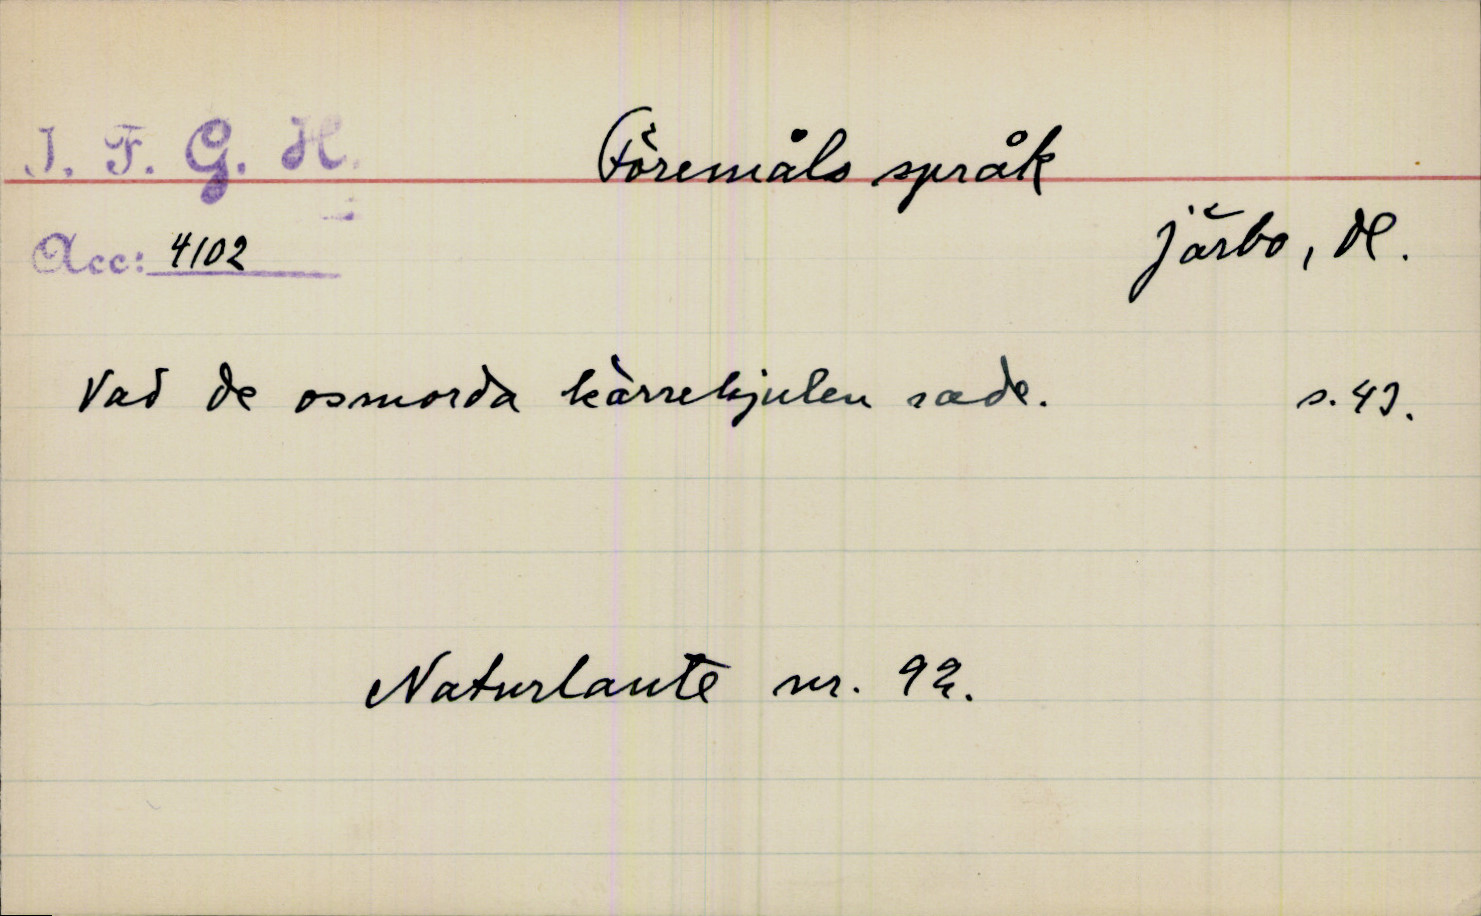 I. F. G. H.
Föremåls språk
Acc: 4102
Järbo, Dl.
Vad de osmorda kärrehjulen sade. s. 43.
Naturlaute nr. 92.